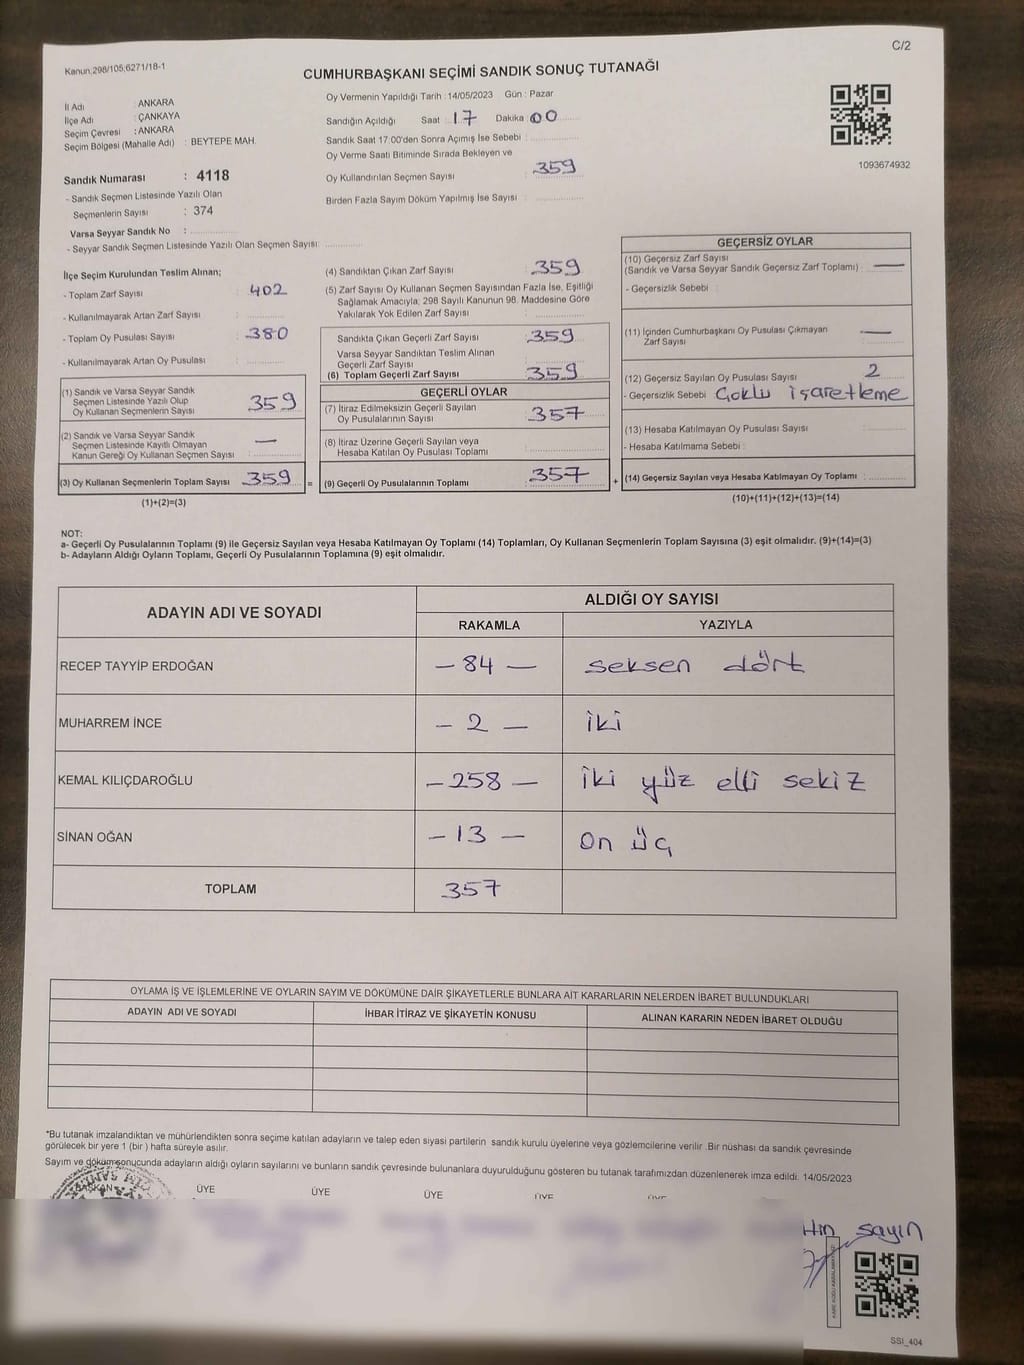 C/2
Kanun:298/105;6271/18-1
CUMHURBAŞKANI SEÇİMİ SANDIK SONUÇ TUTANAĞI
İl Adı : ANKARA
İlçe Adı : ÇANKAYA
Seçim Çevresi : ANKARA
Seçim Bölgesi (Mahalle Adı) : BEYTEPE MAH.
Sandık Numarası : 4118
- Sandık Seçmen Listesinde Yazılı Olan
Seçmenlerin Sayısı : 374
Varsa Seyyar Sandık No :
- Seyyar Sandık Seçmen Listesinde Yazılı Olan Seçmen Sayısı:
Oy Vermenin Yapıldığı Tarih : 14/05/2023 Gün : Pazar
Sandığın Açıldığı Saat : 17 Dakika : 00
Sandık Saat 17:00'den Sonra Açımış İse Sebebi :
Oy Verme Saati Bitiminde Sırada Bekleyen ve
Oy Kullandırılan Seçmen Sayısı : 359
Birden Fazla Sayım Döküm Yapılmış İse Sayısı :
1093674932
İlçe Seçim Kurulundan Teslim Alınan;
- Toplam Zarf Sayısı : 402
- Kullanılmayarak Artan Zarf Sayısı :
- Toplam Oy Pusulası Sayısı : 380
- Kullanılmayarak Artan Oy Pusulası :
(1) Sandık ve Varsa Seyyar Sandık
Seçmen Listesinde Yazılı Olup
Oy Kullanan Seçmenlerin Sayısı : 359
(2) Sandık ve Varsa Seyyar Sandık
Seçmen Listesinde Kayıtlı Olmayan
Kanun Gereği Oy Kullanan Seçmen Sayısı : —
(3) Oy Kullanan Seçmenlerin Toplam Sayısı : 359 =
(1)+(2)=(3)
(4) Sandıktan Çıkan Zarf Sayısı : 359
(5) Zarf Sayısı Oy Kullanan Seçmen Sayısından Fazla İse, Eşitliği
Sağlamak Amacıyla; 298 Sayılı Kanunun 98. Maddesine Göre
Yakılarak Yok Edilen Zarf Sayısı :
Sandıkta Çıkan Geçerli Zarf Sayısı : 359
Varsa Seyyar Sandıktan Teslim Alınan
Geçerli Zarf Sayısı :
(6) Toplam Geçerli Zarf Sayısı : 359
GEÇERLİ OYLAR
(7) İtiraz Edilmeksizin Geçerli Sayılan
Oy Pusulalarının Sayısı : 357
(8) İtiraz Üzerine Geçerli Sayılan veya
Hesaba Katılan Oy Pusulası Toplamı :
(9) Geçerli Oy Pusulalarının Toplamı : 357 +
GEÇERSİZ OYLAR
(10) Geçersiz Zarf Sayısı
(Sandık ve Varsa Seyyar Sandık Geçersiz Zarf Toplamı) : —
- Geçersizlik Sebebi :
(11) İçinden Cumhurbaşkanı Oy Pusulası Çıkmayan
Zarf Sayısı : —
(12) Geçersiz Sayılan Oy Pusulası Sayısı : 2
- Geçersizlik Sebebi Çoklu işaretleme
(13) Hesaba Katılmayan Oy Pusulası Sayısı :
- Hesaba Katılmama Sebebi :
(14) Geçersiz Sayılan veya Hesaba Katılmayan Oy Toplamı :
(10)+(11)+(12)+(13)=(14)
NOT:
a- Geçerli Oy Pusulalarının Toplamı (9) ile Geçersiz Sayılan veya Hesaba Katılmayan Oy Toplamı (14) Toplamları, Oy Kullanan Seçmenlerin Toplam Sayısına (3) eşit olmalıdır. (9)+(14)=(3)
b- Adayların Aldığı Oyların Toplamı, Geçerli Oy Pusulalarının Toplamına (9) eşit olmalıdır.
ADAYIN ADI VE SOYADI ALDIĞI OY SAYISI
RAKAMLA YAZIYLA
RECEP TAYYİP ERDOĞAN – 84 – seksen dört
MUHARREM İNCE – 2 – iki
KEMAL KILIÇDAROĞLU – 258 – iki yüz elli sekiz
SİNAN OĞAN – 13 – on üç
TOPLAM 357
OYLAMA İŞ VE İŞLEMLERİNE VE OYLARIN SAYIM VE DÖKÜMÜNE DAİR ŞİKAYETLERLE BUNLARA AİT KARARLARIN NELERDEN İBARET BULUNDUKLARI
ADAYIN ADI VE SOYADI İHBAR İTİRAZ VE ŞİKAYETİN KONUSU ALINAN KARARIN NEDEN İBARET OLDUĞU
*Bu tutanak imzalandıktan ve mühürlendikten sonra seçime katılan adayların ve talep eden siyasi partilerin sandık kurulu üyelerine veya gözlemcilerine verilir .Bir nüshası da sandık çevresinde
görülecek bir yere 1 (bir ) hafta süreyle asılır.
Sayım ve döküm sonucunda adayların aldığı oyların sayılarını ve bunların sandık çevresinde bulunanlara duyurulduğunu gösteren bu tutanak tarafımızdan düzenlenerek imza edildi. 14/05/2023
BAŞKAN ÜYE ÜYE ÜYE ÜYE ÜYE
sayın
SSI_404